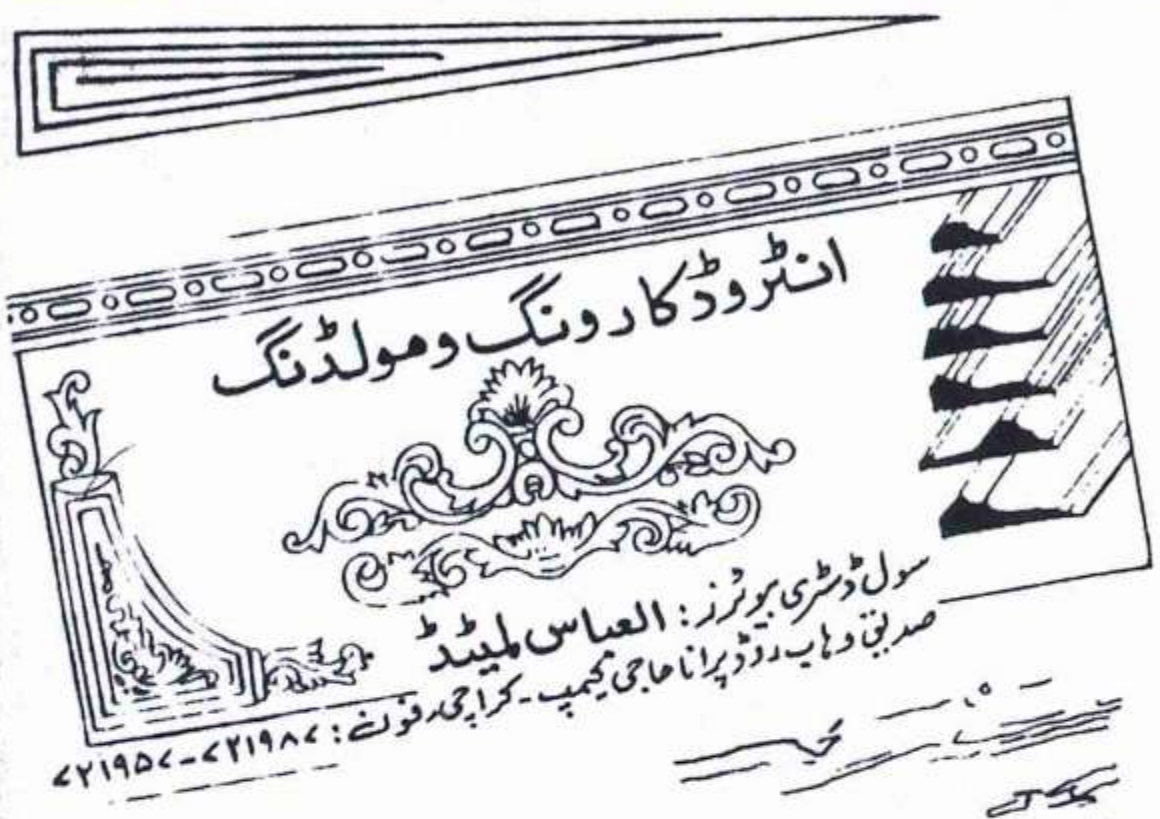 انٹروڈ کارونگ و مولڈنگ
سول ڈسٹری بیوٹرز: العباس لمیٹڈ
صدیق وہاب روڈ پرانا حاجی کیمپ - کراچی، فون: ۷۲۱۹۸۷-۷۲۱۹۵۷